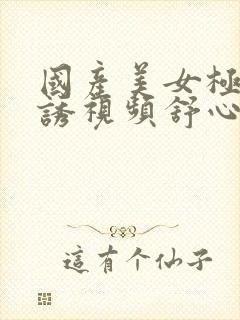 國產美女極
誘視頻舒心
這有个仙子